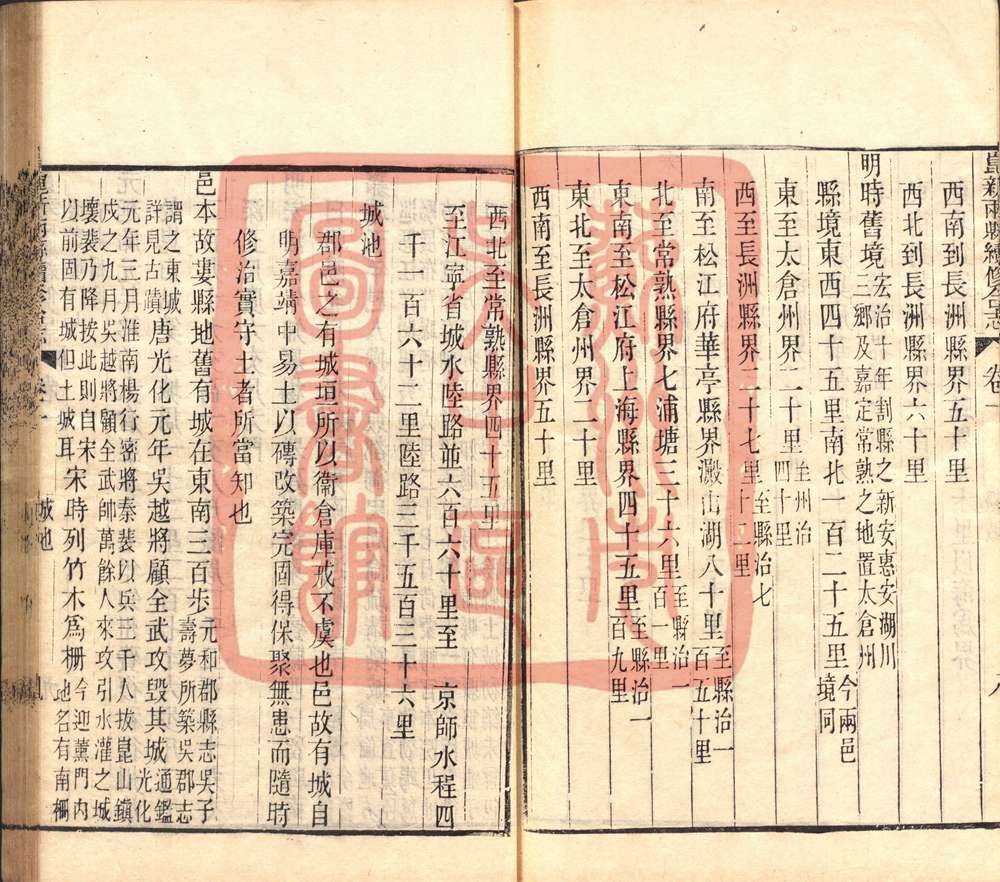 崑新兩縣續修合志 卷一
西南到長洲縣界五十里
西北到長洲縣界六十里
明時舊境宏治十年割縣之新安惠安湖川三鄉及嘉定常熟之地置太倉州
縣境東西四十五里南北一百二十五里今兩邑境同
東至太倉州界二十里至州治四十里
西至長洲縣界二十七里至縣治七十二里
南至松江府華亭縣界澱山湖八十里至縣治一百五十里
北至常熟縣界七浦塘三十六里至縣治一百一里
東南至松江府上海縣界四十五里至縣治一百九里
東北至太倉州界二十里
西南至長洲縣界五十里
西北至常熟縣界四十五里
至江寧省城水陸路並六百六十里至 京師水程四
千一百六十二里陸路三千五百三十六里
城池
郡邑之有城垣所以衛倉庫戒不虞也邑故有城自
明嘉靖中易土以磚改築完固得保聚無患而隨時
修治實守土者所當知也
邑本故婁縣地舊有城在東南三百步元和郡縣志吳子壽夢所築吳郡志
謂之東城詳見古蹟唐光化元年吳越將顧全武攻毀其城通鑑光化
元年三月淮南楊行密將秦裴以兵三千人拔崑山鎮
戍之九月吳越將顧全武帥萬餘人來攻引水灌之城
壞裴乃降按此則自宋以前固有城但土城耳宋時列竹木爲柵今迎薰門內地名有南柵
卷一 城池